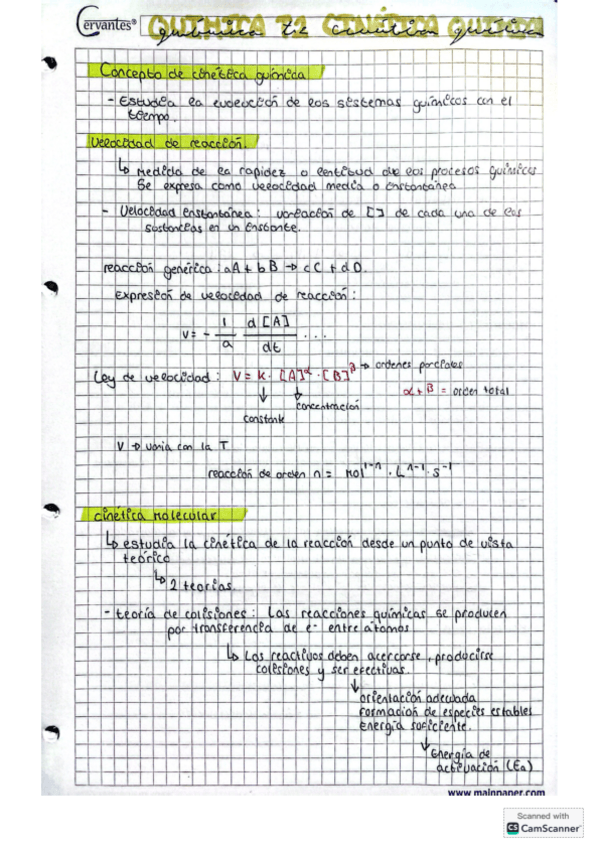 Cervantes®
QUÍMICA T.2 CINÉTICA QUÍMICA
Concepto de cinética química
- Estudia la evolución de los sistemas químicos con el
tiempo.
Velocidad de reacción.
↳ Medida de la rapidez o lentitud de los procesos químicos
Se expresa como velocidad media o instantánea
- Velocidad instantánea: variación de [] de cada una de las
sustancias en un instante.
reacción genérica: aA + bB → cC + dD.
Expresión de velocidad de reacción:
V = - 1/a d[A]/dt ...
Ley de velocidad: V = K · [A]^α · [B]^β → ordenes parciales
α + β = orden total
↓ constante
↓ concentración
V → varia con la T
reacción de orden n = mol^1-n · L^n-1 · s^-1
cinética molecular
↳ estudia la cinética de la reacción desde un punto de vista
teórico
↳ 2 teorías.
- teoría de colisiones: Las reacciones químicas se producen
por transferencia de e- entre átomos
↳ Los reactivos deben acercarse, producirse
colisiones y ser efectivas.
↓ orientación adecuada
Formación de especies estables
Energía suficiente.
↓ Energía de
activación (Ea)
www.mainpaper.com
Scanned with
CS CamScanner